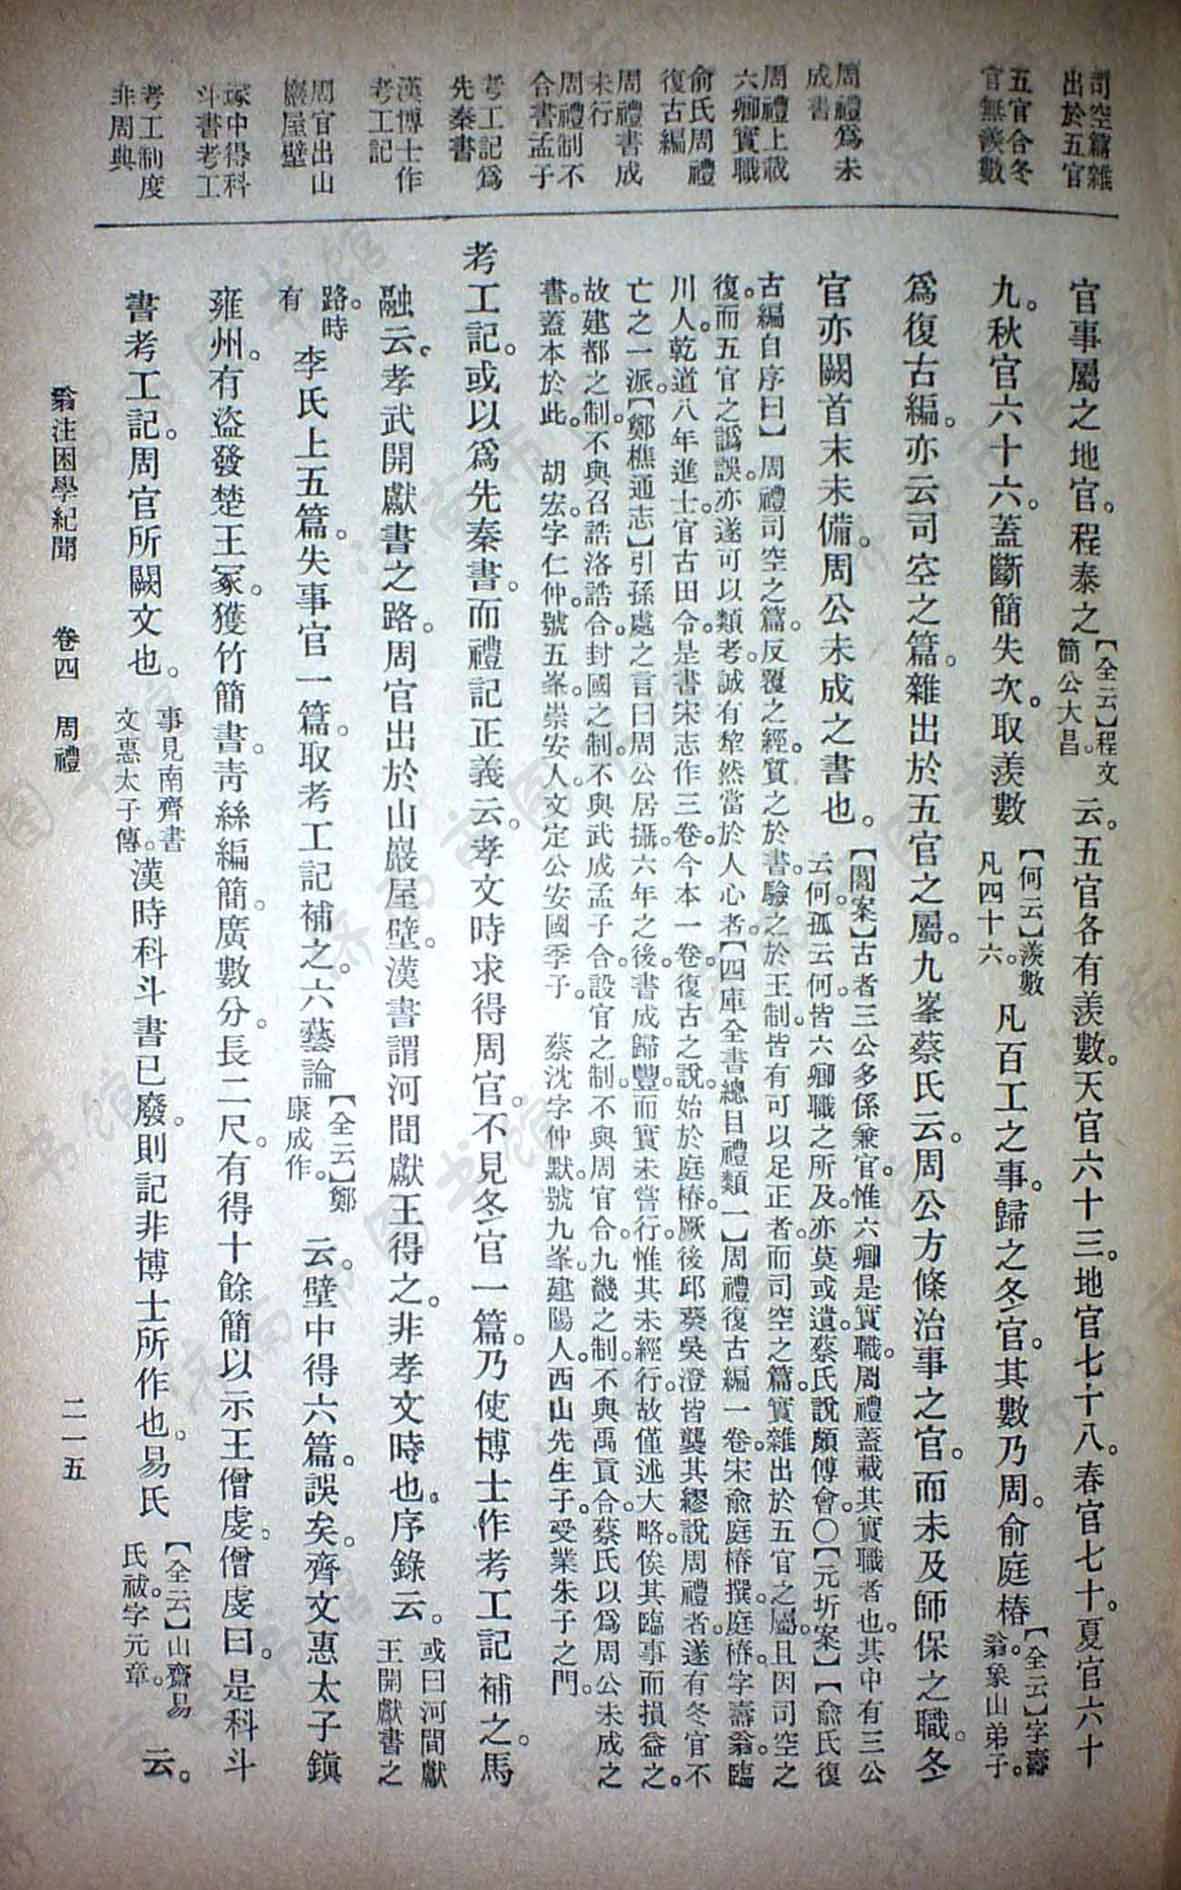 司空篇雜
出於五官
五官合冬
官無羨數
周禮為未
成書
周禮上截
六卿實職
俞氏周禮
復古編
周禮書成
未行
周禮制不
合書孟子
考工記為
先秦書
漢博士作
考工記
周官出山
巖屋壁
冢中得科
斗書考工
考工制度
非周典
官事屬之地官。程泰之【全云】程文簡公大昌。云。五官各有羨數。天官六十三。地官七十八。春官七十。夏官六十
九。秋官六十六。蓋斷簡失次。取羨數【何云】羨數凡四十六。凡百工之事。歸之冬官。其數乃周。俞庭椿【全云】字壽翁。象山弟子。
為復古編。亦云司空之篇。雜出於五官之屬。九峯蔡氏云。周公方條治事之官。而未及師保之職。冬
官亦闕。首末未備。周公未成之書也。【閻案】古者三公多係兼官。惟六卿是實職。周禮蓋截其實職者也。其中有三公云何。孤云何。皆六卿職之所及。亦莫或遺。蔡氏說頗傅會。〇【元圻案】【俞氏復
古編自序曰】周禮司空之篇。反覆之經。質之於書。驗之於王制。皆有可以足正者。而司空之篇。實雜出於五官之屬。且因司空之
復。而五官之譌誤。亦遂可以類考。誠有犂然當於人心者。【四庫全書總目禮類一】周禮復古編一卷。宋俞庭椿撰。庭椿字壽翁。臨
川人。乾道八年進士。官古田令。是書宋志作三卷。今本一卷。復古之說。始於庭椿。厥後邱葵吳澄皆襲其繆說周禮者。遂有冬官不
亡之一派。【鄭樵通志】引孫處之言曰。周公居攝。六年之後。書成歸豐。而實未嘗行。惟其未經行。故僅述大略。俟其臨事而損益之。
故建都之制。不與召誥洛誥合。封國之制。不與武成孟子合。設官之制。不與周官合。九畿之制。不與禹貢合。蔡氏以為周公未成之
書。蓋本於此。 胡宏。字仁仲。號五峯。崇安人。文定公安國季子。 蔡沈字仲默。號九峯。建陽人。西山先生子。受業朱子之門。
考工記。或以為先秦書。而禮記正義云。孝文時求得周官。不見冬官一篇。乃使博士作考工記補之。馬
融云。孝武開獻書之路。周官出於山巖屋壁。漢書謂河間獻王得之。非孝文時也。序錄云。或曰河間獻王開獻書之
路。時有李氏上五篇。失事官一篇。取考工記補之。六藝論【全云】鄭康成作。云。壁中得六篇。誤矣。齊文惠太子鎮
雍州。有盜發楚王冢。獲竹簡書。青絲編簡。廣數分。長二尺。有得十餘簡以示王僧虔。僧虔曰。是科斗
書考工記。周官所闕文也。事見南齊書文惠太子傳。漢時科斗書已廢。則記非博士所作也。易氏【全云】山齋易氏祓。字元章。云。
翁注困學紀聞 卷四 周禮 二一五